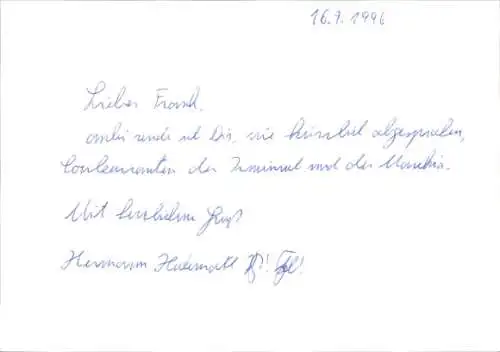 16.7.1996
Lieber Frank,
anbei sende ich Dir, wie kürzlich abgesprochen,
Couleurkarten der und der Markia.
Mit herzlichem Gruß
Hermann